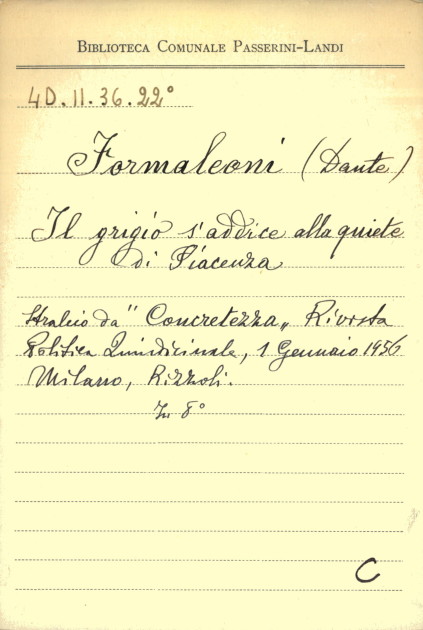 BIBLIOTECA COMUNALE PASSERINI-LANDI
4D.II.36.22°
Formaleoni (Dante)
Il grigio s'addice alla quiete
di Piacenza
Stralcio da "Concretezza„ Rivista
Politica Quindicinale, 1 Gennaio 1956
Milano, Rizzoli.
In 8°
C